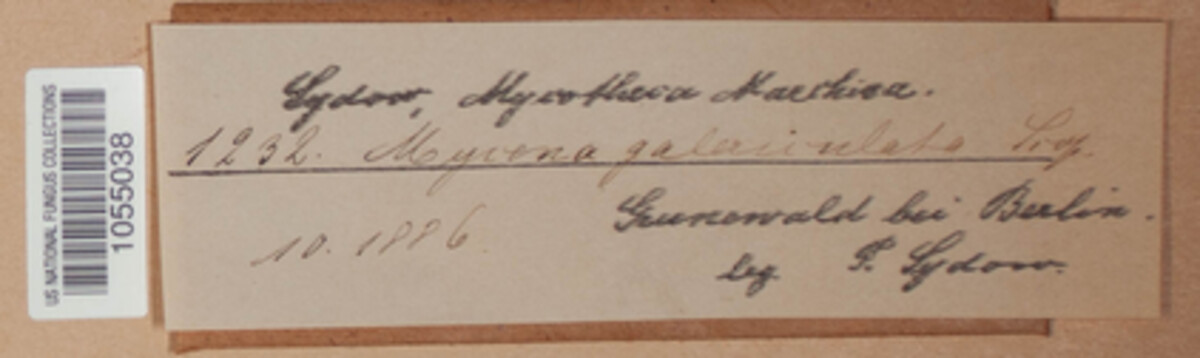 US NATIONAL FUNGUS COLLECTIONS
1055038
Sydow, Mycotheca Marchica.
1232. Mycena galericulata Scop.
10. 1886.
Grunewald bei Berlin.
leg. P. Sydow.